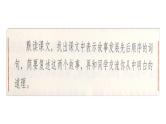 默读课文，找出课文中表示故事发展先后顺序的词
句，简要复述这两个故事，再和同学交流你从中明白的
道理。